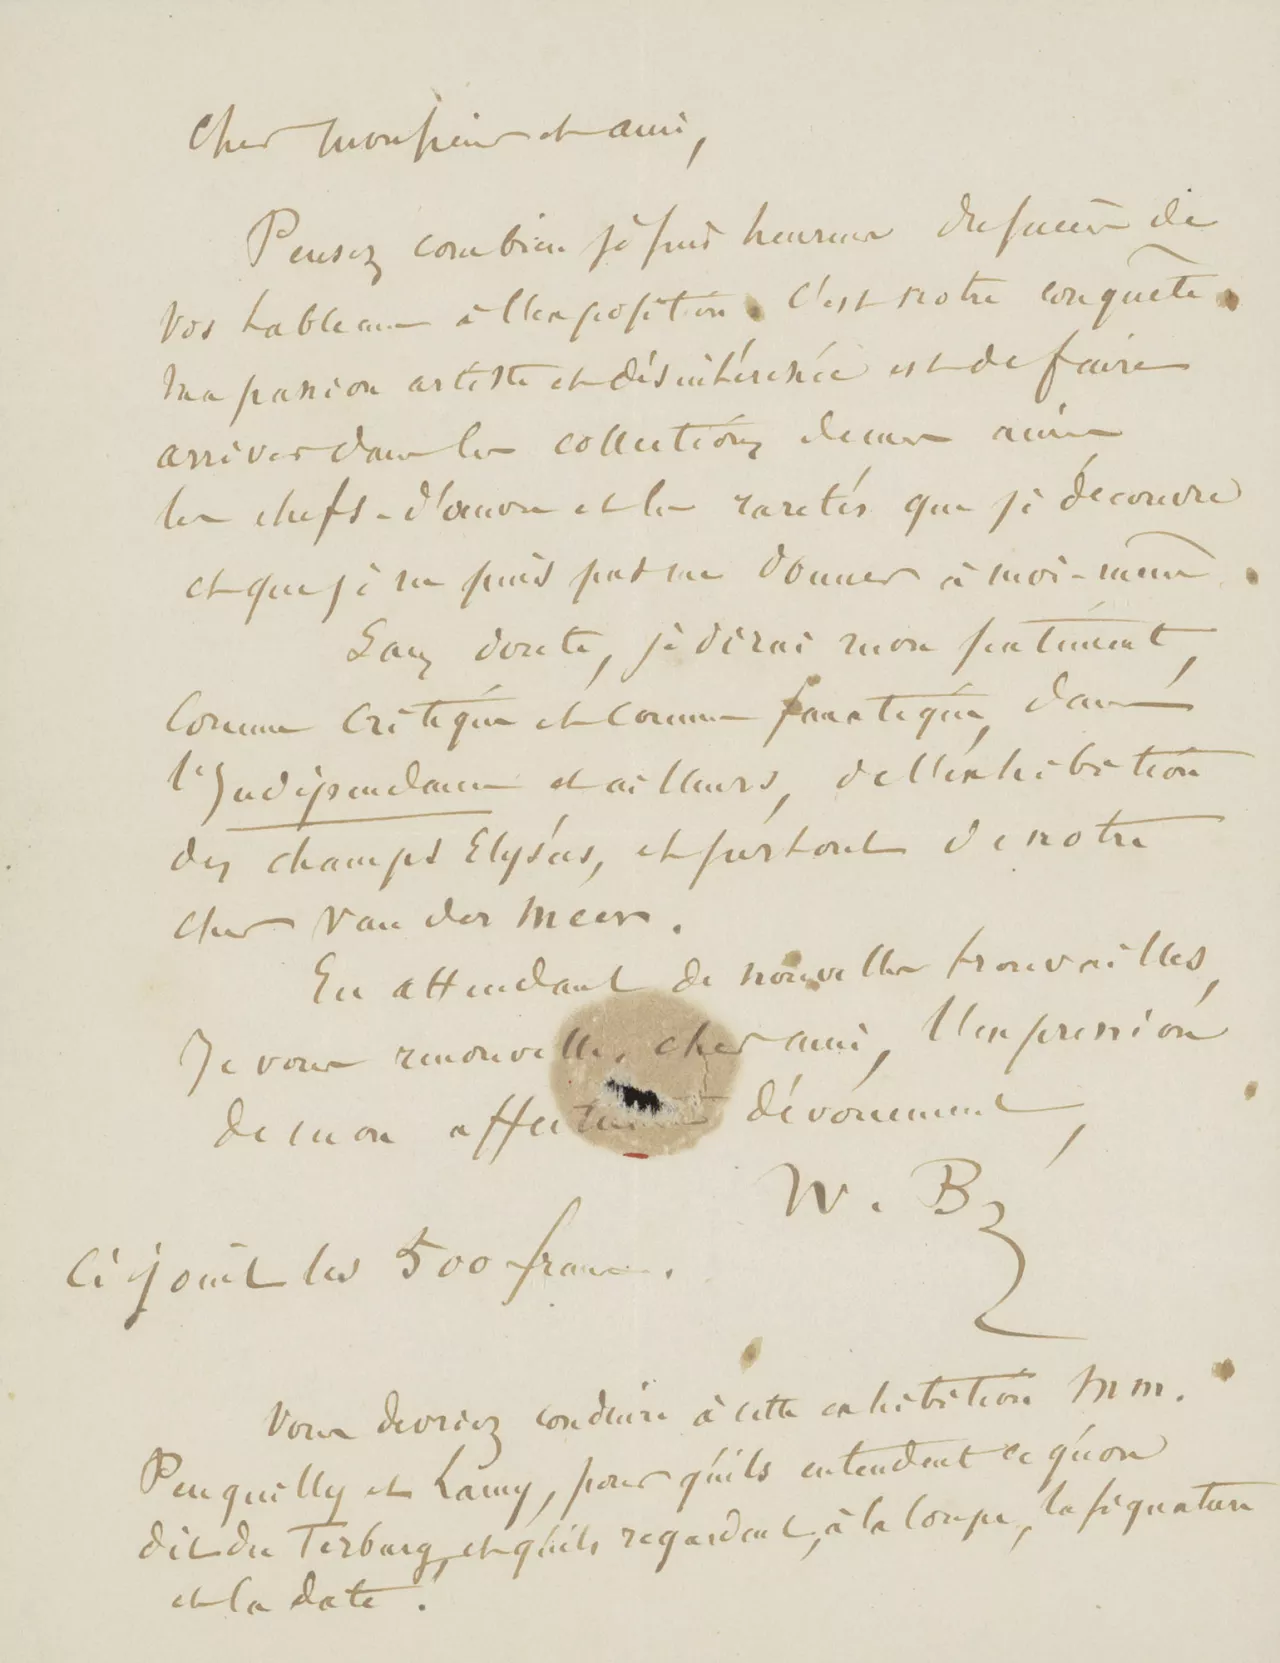 Cher Monsieur et ami,
Pensez combien je suis heureux du succès de
vos tableaux à l'exposition. C'est notre conquête.
Ma passion artiste et désintéressée est de faire
arriver dans les collections d'eux amis
les chefs-d'œuvre et les raretés que je découvre
et que je ne puis pas me donner à moi-même.
Sans doute, je dirai mon sentiment,
comme critique et comme fanatique, dans
l'Indépendance et ailleurs, de l'exhibition
des Champs Elysées, et surtout de notre
cher Van der Meer.
En attendant de nouvelles trouvailles,
Je vous renouvelle, cher ami, l'expression
de mon affectueux dévouement,
W. B
Ci joint les 500 francs.
Vous devriez conduire à cette exhibition MM.
Penguilly et Lamy, pour qu'ils entendent ce qu'on
dit du Terburg, et qu'ils regardent, à la loupe, la signature
et la date.